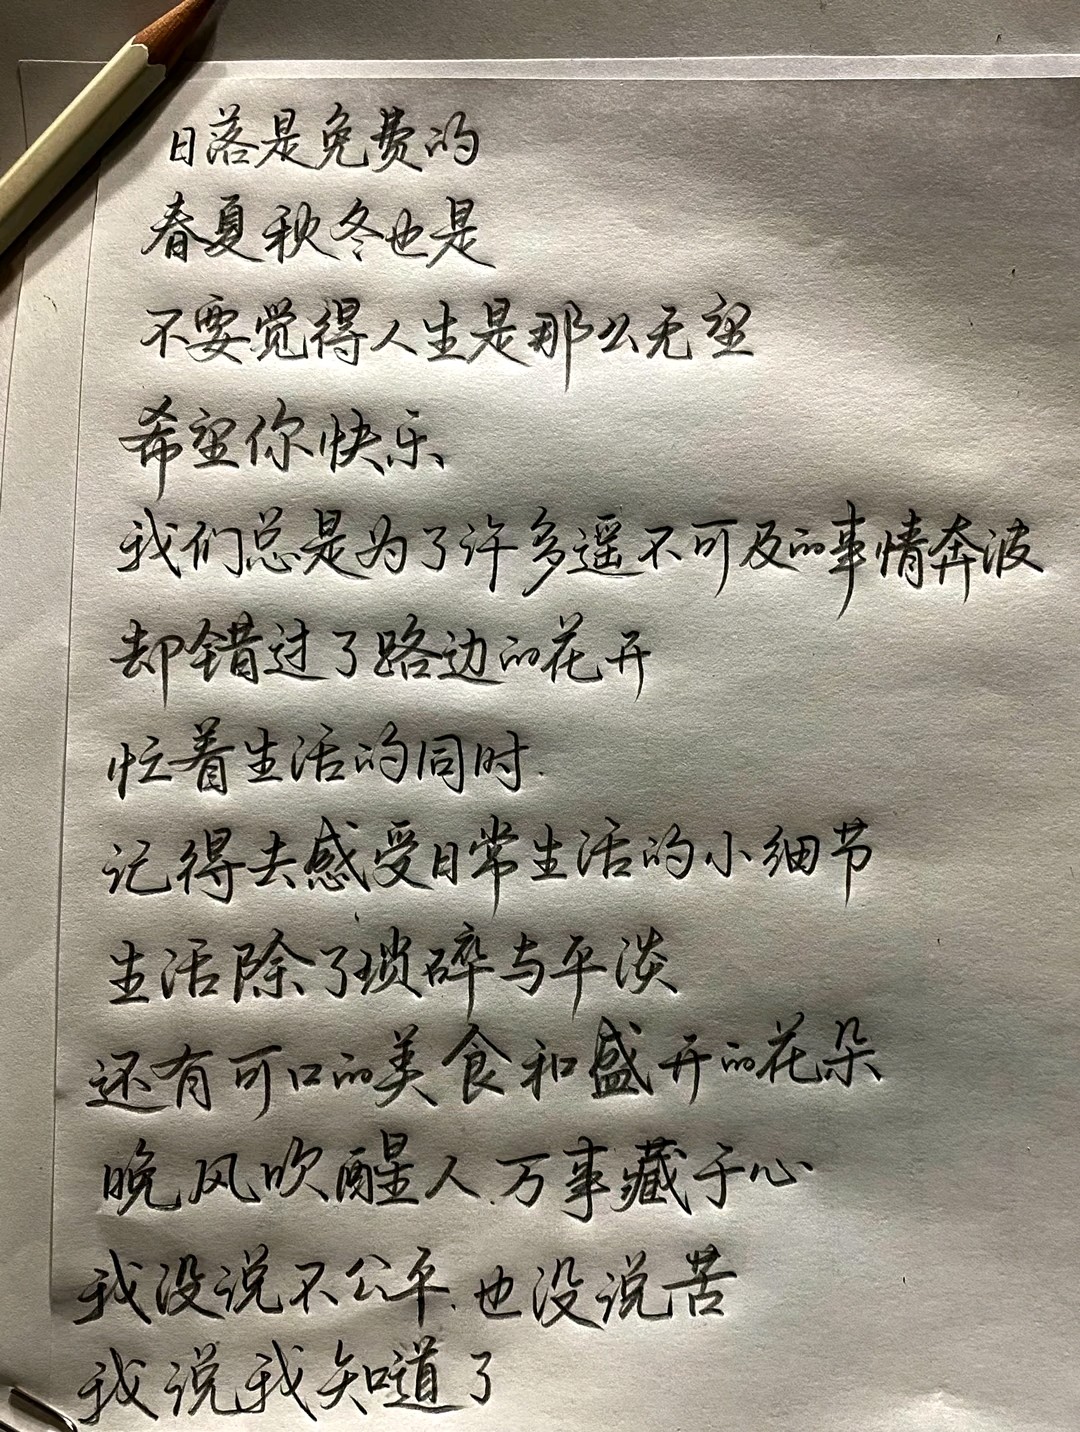 日落是免费的
春夏秋冬也是
不要觉得人生是那么无望
希望你快乐
我们总是为了许多遥不可及的事情奔波
却错过了路边的花开
忙着生活的同时.
记得去感受日常生活的小细节
生活除了琐碎与平淡
还有可口的美食和盛开的花朵
晚风吹醒人.万事藏于心
我没说不公平.也没说苦
我说我知道了